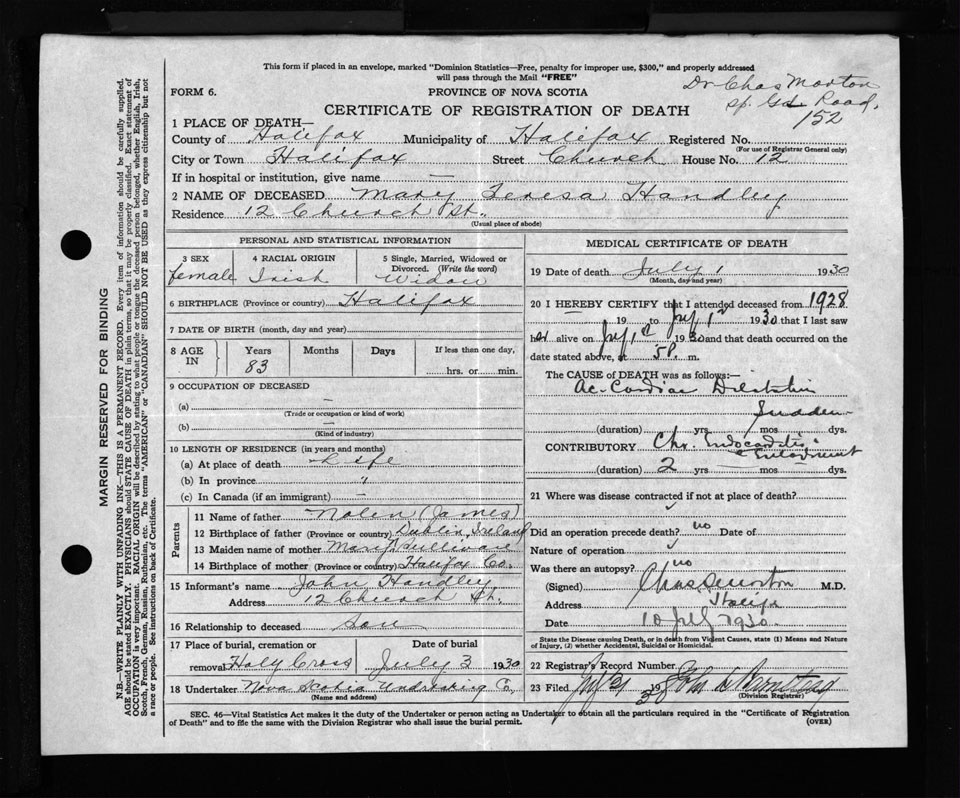 This form if placed in an envelope, marked "Dominion Statistics—Free, penalty for improper use, $300," and properly addressed
will pass through the Mail "FREE"
Dr Chas Morton
Sp. Gd. Road.
152
FORM 6.
PROVINCE OF NOVA SCOTIA
CERTIFICATE OF REGISTRATION OF DEATH
1 PLACE OF DEATH—
County of Halifax Municipality of Halifax Registered No.
(For use of Registrar General only)
City or Town Halifax Street Church House No. 12
If in hospital or institution, give name —
2 NAME OF DECEASED Mary Teresa Handley
Residence 12 Church St.
(Usual place of abode)
PERSONAL AND STATISTICAL INFORMATION
3 SEX
female
4 RACIAL ORIGIN
Irish
5 Single, Married, Widowed or
Divorced. (Write the word)
Widow
6 BIRTHPLACE (Province or country) Halifax
7 DATE OF BIRTH (month, day and year)
8 AGE
IN
Years
83
Months
Days
If less than one day,
hrs. or min.
9 OCCUPATION OF DECEASED
(a) —
(Trade or occupation or kind of work)
(b) —
(Kind of industry)
10 LENGTH OF RESIDENCE (in years and months)
(a) At place of death Life
(b) In province "
(c) In Canada (if an immigrant) —
Parents
11 Name of father Nolen (James)
12 Birthplace of father (Province or country) Dublin, Ireland
13 Maiden name of mother Mary Sullivan
14 Birthplace of mother (Province or country) Halifax Co.
15 Informant's name John Handley
Address 12 Church St.
16 Relationship to deceased son
17 Place of burial, cremation or
removal Holy Cross
Date of burial
July 3 1930
18 Undertaker Nova Scotia Undertaking C.
(Name and address)
MEDICAL CERTIFICATE OF DEATH
19 Date of death July 1 1930
(Month, day and year)
20 I HEREBY CERTIFY that I attended deceased from 1928
19 to July 1st 1930 that I last saw
her alive on July 1st 1930 and that death occurred on the
date stated above, at 5 P. m.
The CAUSE of DEATH was as follows:—
Ac. Cardiac Dilatation
Sudden
(duration) yrs mos dys.
CONTRIBUTORY Chr. Endocarditis
(duration) 2 yrs — mos dys.
21 Where was disease contracted if not at place of death?
Did an operation precede death? no Date of
Nature of operation
Was there an autopsy? no
(Signed) Chas S Morton M.D.
Address Halifax
Date 10 July 1930.
State the Disease causing Death, or in death from Violent Causes, state (1) Means and Nature
of Injury, (2) whether Accidental, Suicidal or Homicidal.
22 Registrar's Record Number
23 Filed July 21 1930
(Division Registrar)
SEC. 46—Vital Statistics Act makes it the duty of the Undertaker or person acting as Undertaker to obtain all the particulars required in the "Certificate of Registration
of Death" and to file the same with the Division Registrar who shall issue the burial permit.
(OVER)
MARGIN RESERVED FOR BINDING
N.B.—WRITE PLAINLY WITH UNFADING INK—THIS IS A PERMANENT RECORD. Every item of information should be carefully supplied.
AGE should be stated EXACTLY. PHYSICIANS should STATE CAUSE OF DEATH in plain terms, so that it may be properly classified. Exact statement of
OCCUPATION is very important. RACIAL ORIGIN will be described by stating to what people or tongue the deceased person belonged, whether English, Irish,
Scotch, French, German, Russian, Ruthenian, etc. The terms "AMERICAN" or "CANADIAN" SHOULD NOT BE USED as they express citizenship but not
a race or people. See instructions on back of Certificate.